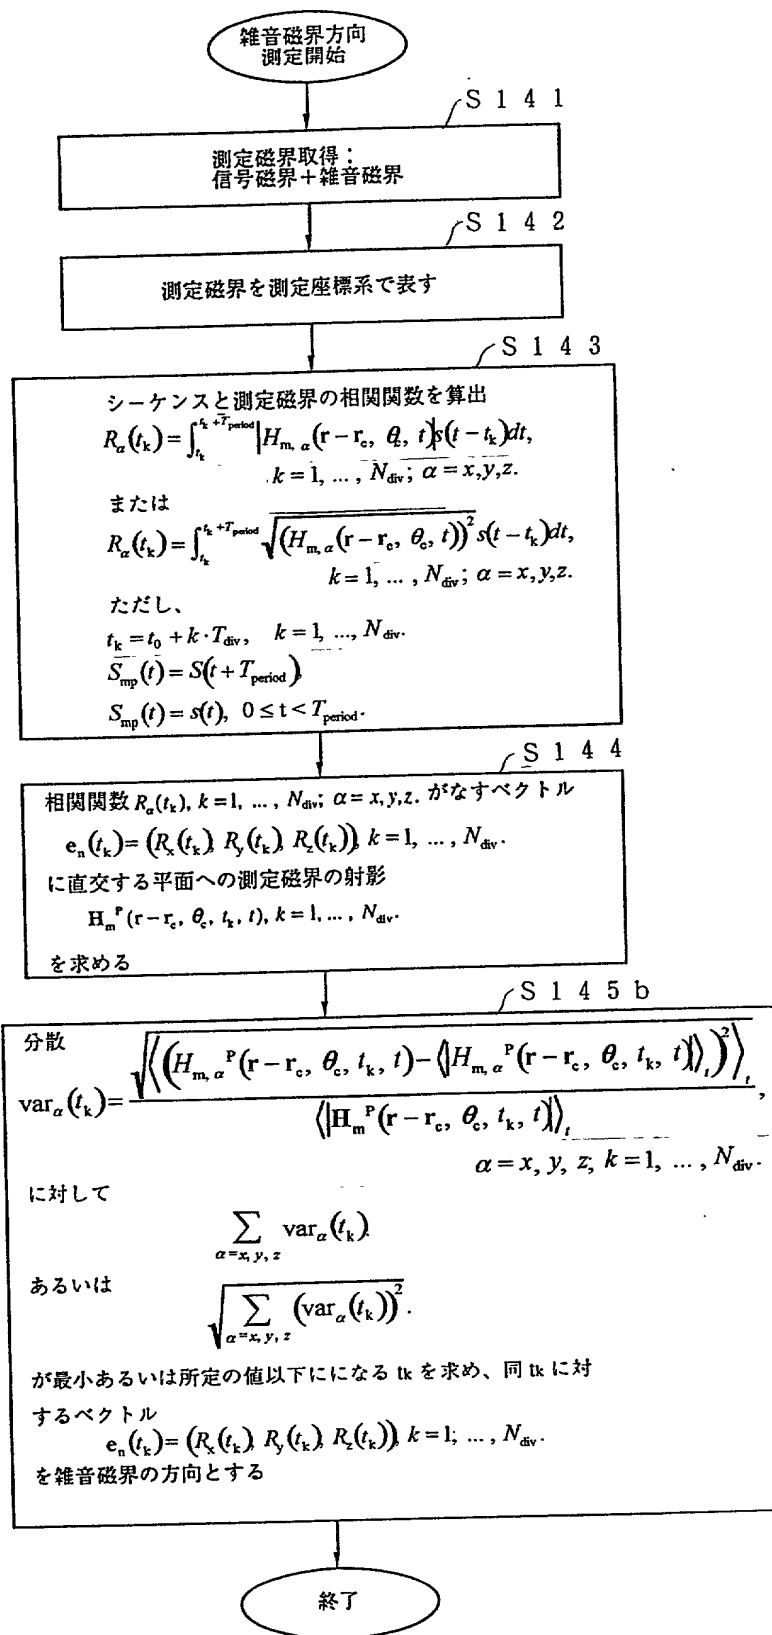 雑音磁界方向
測定開始
S141
測定磁界取得：
信号磁界＋雑音磁界
S142
測定磁界を測定座標系で表す
S143
シーケンスと測定磁界の相関関数を算出
R_α(t_k)=∫_{t_k}^{t_k+T_period}|H_{m, α}(r−r_c, θ_c, t)|s(t−t_k)dt,
k=1, ..., N_div; α=x,y,z.
または
R_α(t_k)=∫_{t_k}^{t_k+T_period}√((H_{m, α}(r−r_c, θ_c, t))^2) s(t−t_k)dt,
k=1, ..., N_div; α=x,y,z.
ただし、
t_k=t_0+k·T_div, k=1, ..., N_div.
S_mp(t)=S(t+T_period),
S_mp(t)=s(t), 0≤t<T_period.
S144
相関関数 R_α(t_k), k=1, ..., N_div; α=x,y,z. がなすベクトル
e_n(t_k)=(R_x(t_k), R_y(t_k), R_z(t_k)), k=1, ..., N_div.
に直交する平面への測定磁界の射影
H_m^P(r−r_c, θ_c, t_k, t), k=1, ..., N_div.
を求める
S145b
分散
var_α(t_k)=√⟨(H_{m, α}^P(r−r_c, θ_c, t_k, t)−⟨|H_{m, α}^P(r−r_c, θ_c, t_k, t)|⟩_t)^2⟩_t / ⟨|H_m^P(r−r_c, θ_c, t_k, t)|⟩_t,
α=x, y, z; k=1, ..., N_div.
に対して
∑_{α=x, y, z} var_α(t_k).
あるいは
√(∑_{α=x, y, z}(var_α(t_k))^2).
が最小あるいは所定の値以下にになる tk を求め、同 tk に対
するベクトル
e_n(t_k)=(R_x(t_k), R_y(t_k), R_z(t_k)), k=1; ..., N_div.
を雑音磁界の方向とする
終了